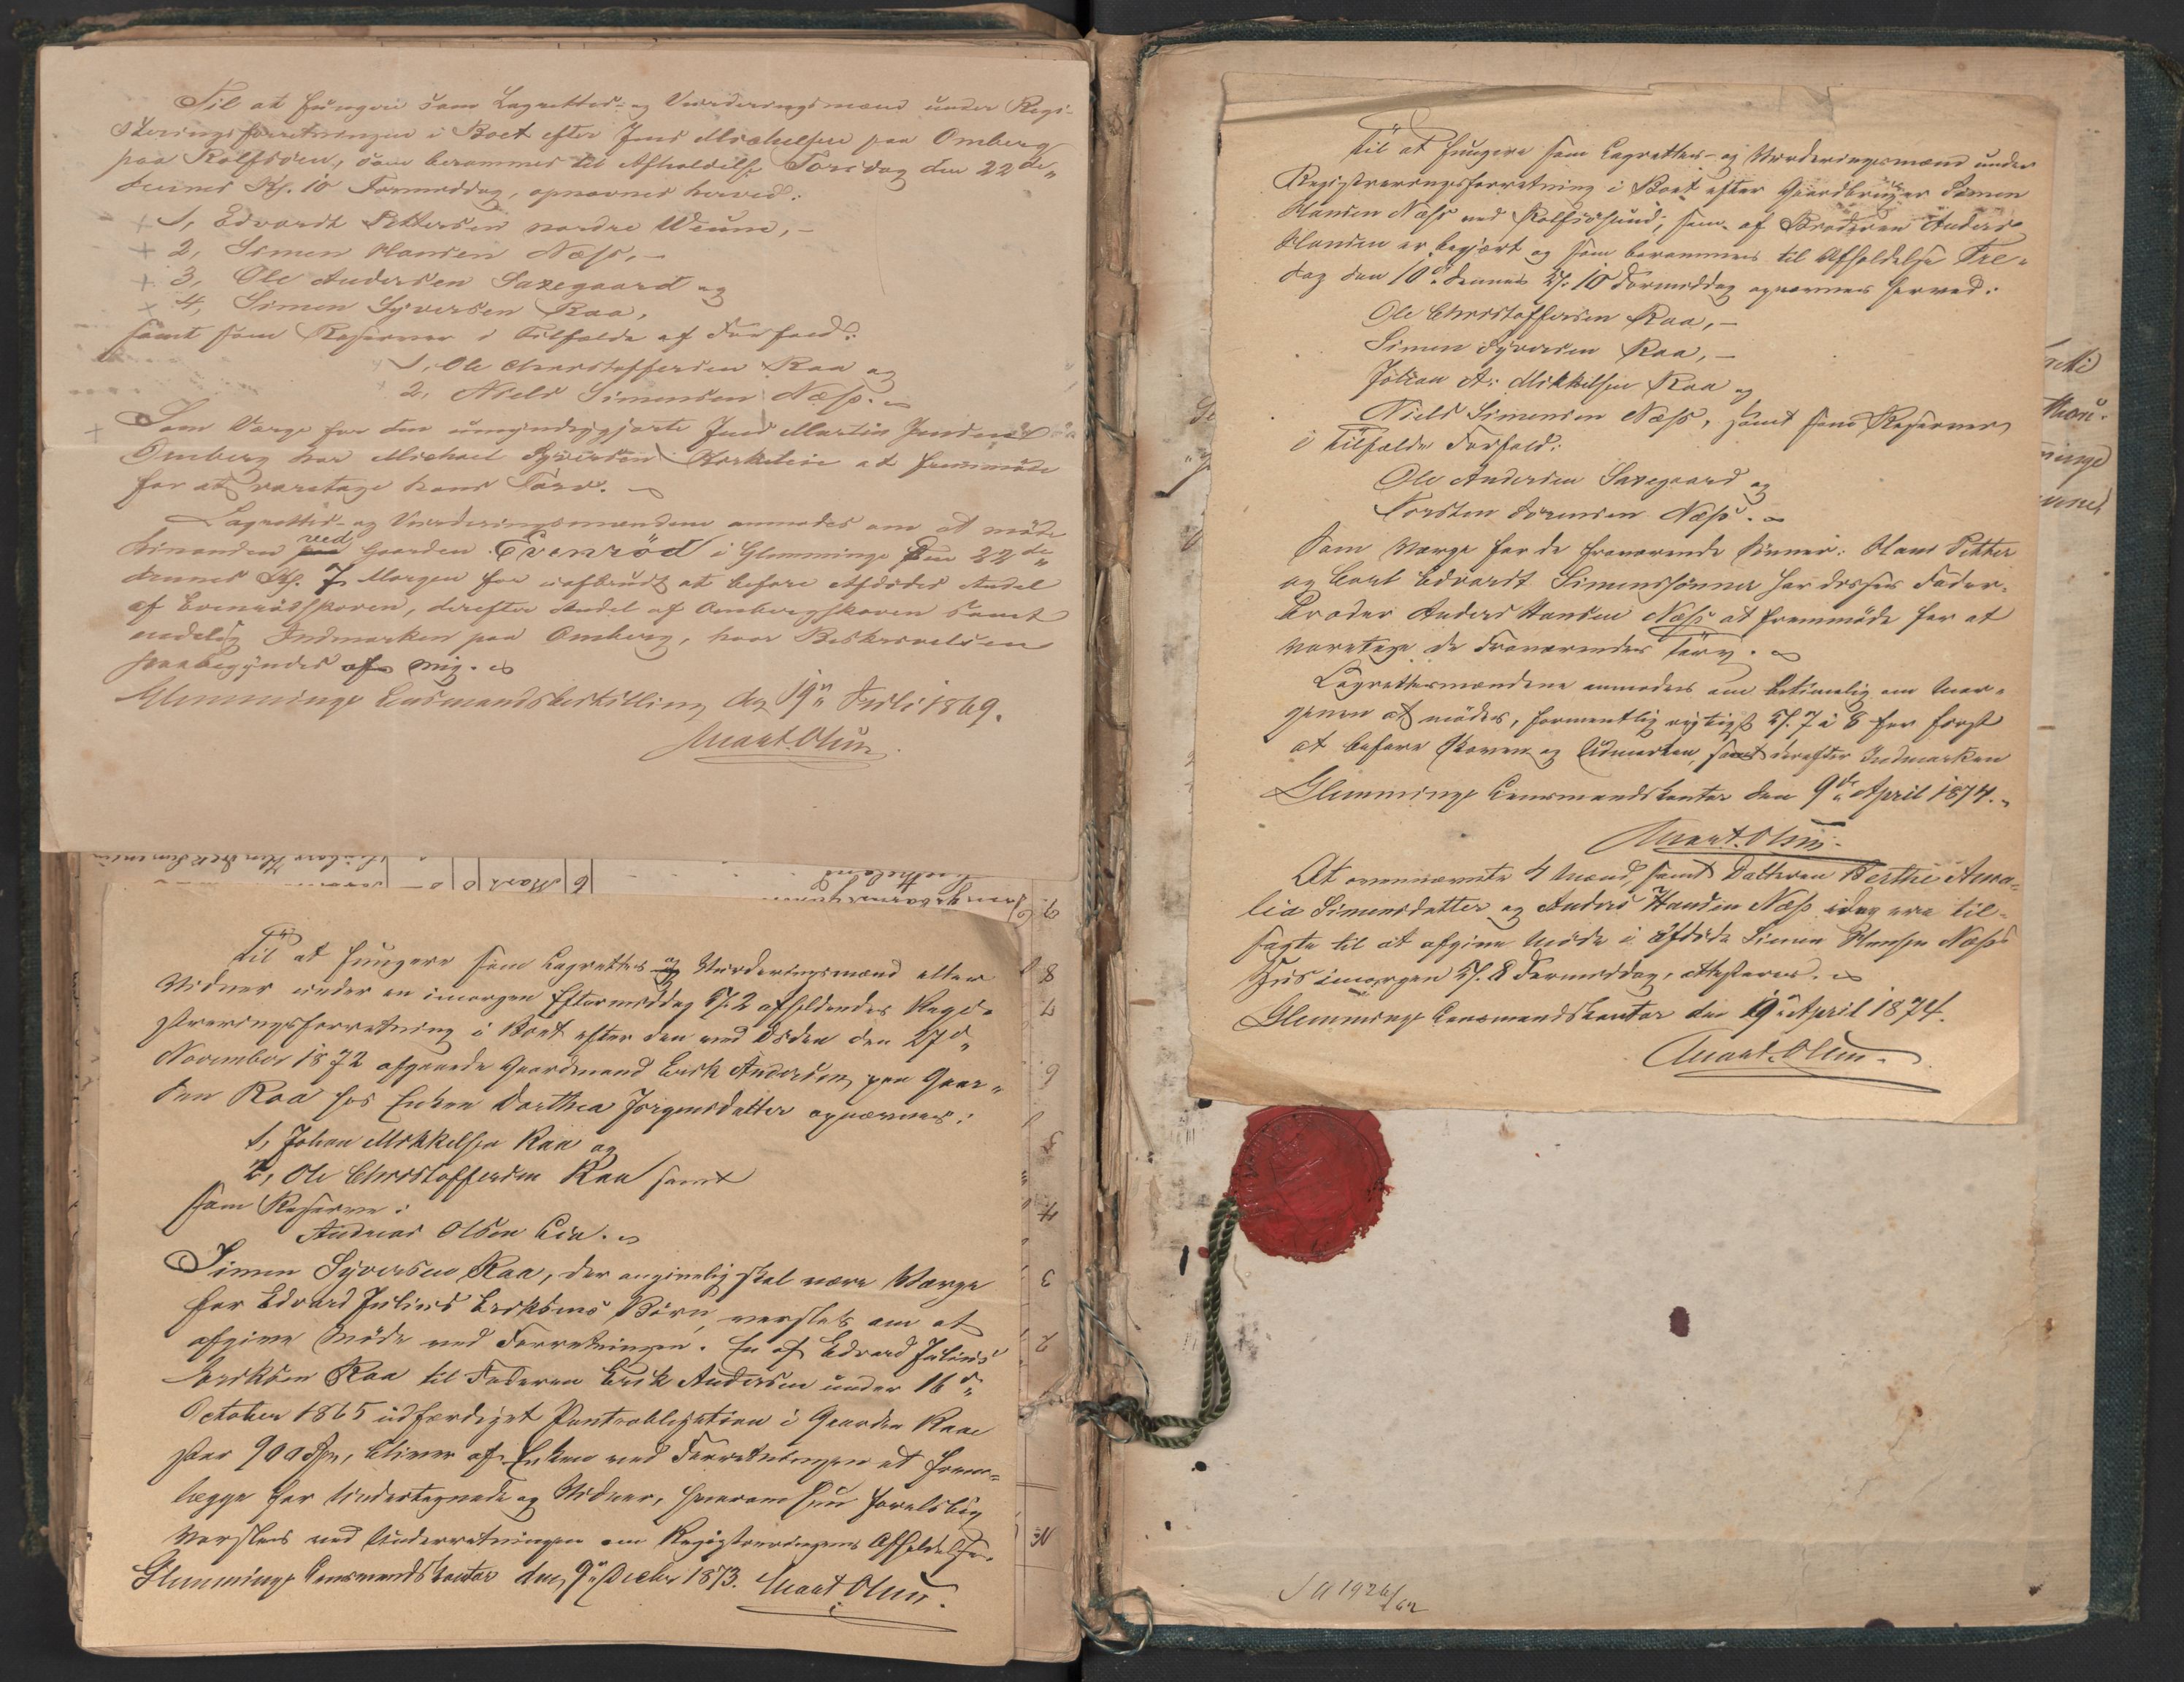 Til at fungere som Lagrettes- og Vurderingsmænd under Regi-
streringsforretningen i Boet efter Jens Michelsen paa Omberg
paa Rolfsöen, som berammes til Afholdelse Torsdag den 22de
dennes Kl. 10 Formiddag, opnævnes herved:
1, Edvardt Pettersen nordre Wium,-
2, Simen Hansen Næss,-
3, Ole Andersen Saxegaard og
4, Simen Syversen Raa,
samt som Reserver i Tilfælde af Forfald:
1, Ole Christoffersen Raa og
2, Niels Simensen Næss.
Som Værge for den umyndiggjorte Jens Martin Jensen
Omberg har Michael Syversen at fremmöde
for at varetage hans Tarv.
Lagrettes- og Vurderingsmændene anmodes om at möde
ved Gaarden Evenröd i Glemminge den 22de
dennes Kl. 7 Morgen for at befare Afdödes Andel
af Evenrödskoven, derefter Andel af Ombergskoven samt
endelig Indmarken paa Omberg, hvor Beskrivelsen
paabegyndes af mig.
Glemminge Lensmandsbestilling den 19de Juli 1869.
Mart. Olsen
Til at fungere som Lagrettes og Vurderingsmænd eller
Vidner under en imorgen Eftermiddag Kl. 2 afholdendes Regi-
streringsforretning i Boet efter den ved Döden den 27de
November 1872 afgaaede Gaardmand Erik Andersen paa Gaar-
den Raa hos Enken Dorthea Jörgensdatter opnævnes:
1, Johan Mikkelsen Raa og
2, Ole Christoffersen Raa samt
som Reserve:
Andreas Olsen Lie.
Simen Syversen Raa, der angivelig skal være Værge
for Edvard Julius Eriksens Börn, varsles om at
afgive Möde ved Forretningen. En af Edvard Julius
Eriksen Raa til Faderen Erik Andersen under 16de
October 1865 udfærdiget Pantobligation i Gaarden Raa
stor 900 Spd, bliver af Enken ved Forretningen at frem-
lægge for Undertegnede og Vidner, hvorom hun
varsles ved Underretningen om Registreringens Afholdelse.
Glemminge Lensmandskontor den 9de Decbr 1873. Mart. Olsen.
Til at fungere som Lagrettes- og Vurderingsmænd under
Registreringsforretning i Boet efter Gaardbruger Simen
Hansen Næss ved Rolfsösund, som af Broderen Anders
Hansen er begjært og som berammes til Afholdelse Fre-
dag den 10de dennes Kl. 10 Formiddag opnævnes herved:
Ole Christoffersen Raa,-
Simen Syversen Raa,-
Johan A. Mikkelsen Raa og
Niels Simensen Næss, samt som Reserver
i Tilfælde Forfald:
Ole Andersen Saxegaard og
Torsten Sörensen Næss.
Som Værge for de fraværende Sönner: Hans Petter
og Carl Edvardt Simenssönner har disses Fader-
broder Anders Hansen Næss at fremmöde for at
varetage de Fraværendes Tarv.
Lagrettesmændene anmodes om betimelig om Mor-
genen at mödes, formentlig rigtigst Kl. 7 à 8 for först
at befare Skoven og Udmarken, samt derefter Indmarken
Glemminge Lensmandskontor den 9de April 1874.
Mart. Olsen.
At ovennævnte 4 Mænd, samt Datteren Berthe Ama-
lia Simensdatter og Anders Hansen Næss idag ere til-
sagte til at afgive Möde i Afdöde Simen Hansen Næss
Hus imorgen Kl. 8 Formiddag, attesteres.
Glemminge Lensmandskontor den 9de April 1874.
Mart. Olsen.